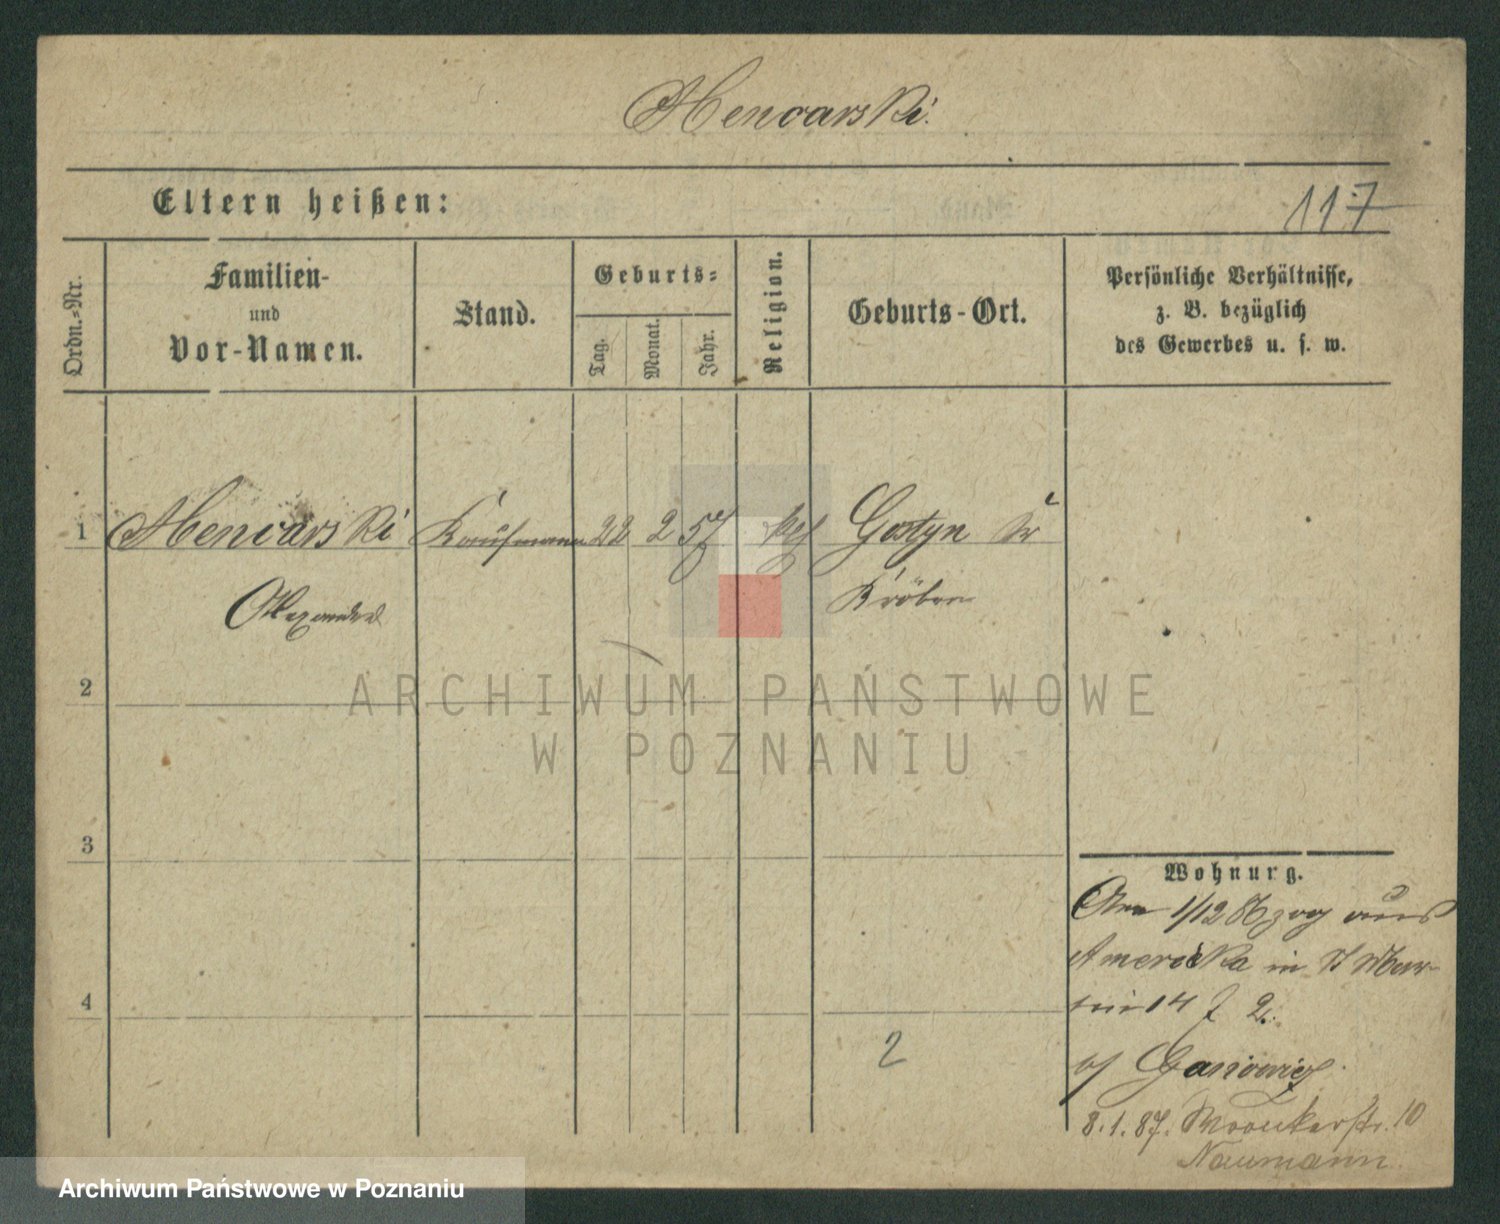 Hencarski.
Eltern heißen:
117
Ordn.-Nr.
Familien-
und
Vor-Namen.
Stand.
Geburts-
Tag.
Monat.
Jahr.
Religion.
Geburts-Ort.
Persönliche Verhältnisse,
z. B. bezüglich
des Gewerbes u. s. w.
1 Hencarski Kaufmann 22 2 57 kth Gostyn Kr
Alexander Kröben
2
ARCHIWUM PAŃSTWOWE
W POZNANIU
3
4
Wohnurg.
Am 1/12 86 zog aus
Amerika in St Mar-
tin 14 2.
b/
2
8.1.87. Wronkerstr. 10
Naumann
Archiwum Państwowe w Poznaniu